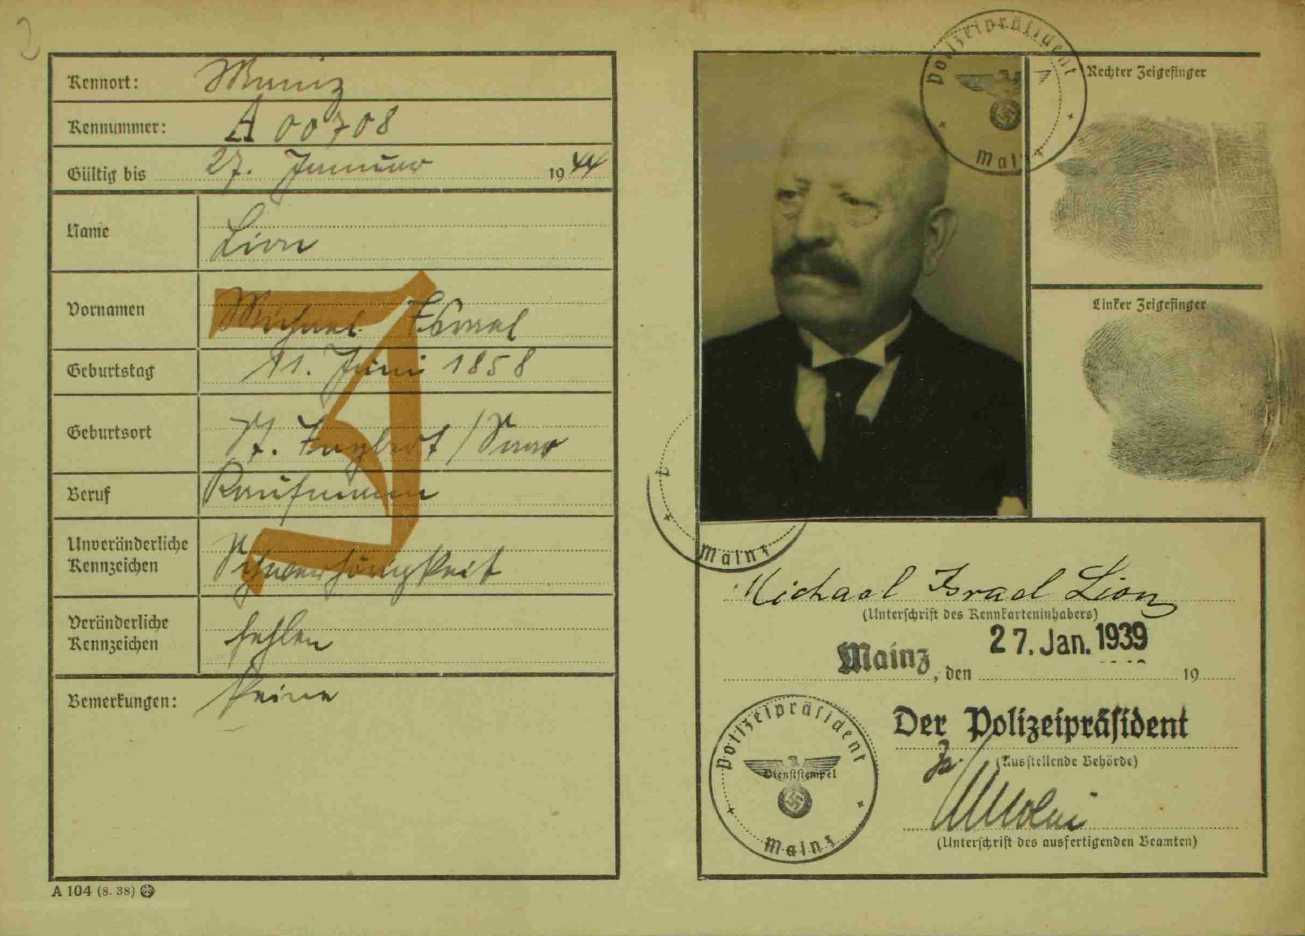 2
Kennort: Mainz
Kennummer: A 00708
Gültig bis 27. Januar 1944
Name Lion
Vornamen Michael Israel
Geburtstag 11. Juni 1858
Geburtsort St. Ingbert / Saar
Beruf Kaufmann
Unveränderliche Kennzeichen Schwerhörigkeit
Veränderliche Kennzeichen fehlen
Bemerkungen: keine
J
A 104 (8. 38)
Polizeipräsident
Mainz
Rechter Zeigefinger
Linker Zeigefinger
Mainz
Michael Israel Lion
(Unterschrift des Kennkarteninhabers)
Mainz, den 27. Jan. 1939 19
Der Polizeipräsident
(Ausstellende Behörde)
(Unterschrift des ausfertigenden Beamten)
Polizeipräsident
Dienststempel
Mainz